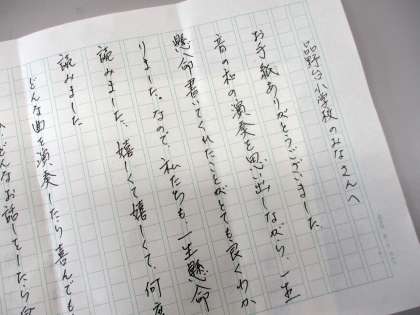 品野台小学校のみなさんへ
お手紙ありがとうございました。
音の和の演奏を思い出しながら、一生
懸命書いてくれたことがとても良くわか
りました。なので、私たちも、一生懸命
読みました。嬉しくて嬉しくて、何度
読みました
どんな曲を演奏したら喜んでも
どんなお話しをしたら